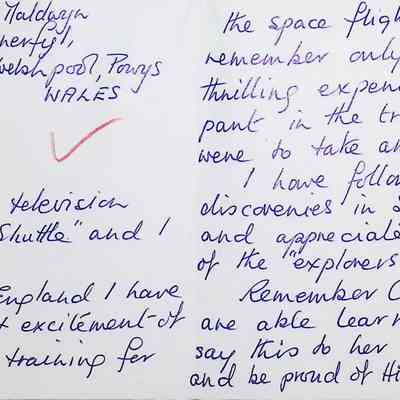 Maldwyn
nerfyl,
Welshpool, Powys
WALES
television
Shuttle" and I
England I have
excitement of
training for
the space fligh
remember only
thrilling experi
pant in the tr
were to take an
I have follow
discoveries in S
and appreciate
of the "explorers
Remember C
are able learn
say this to her
and be proud of Hi